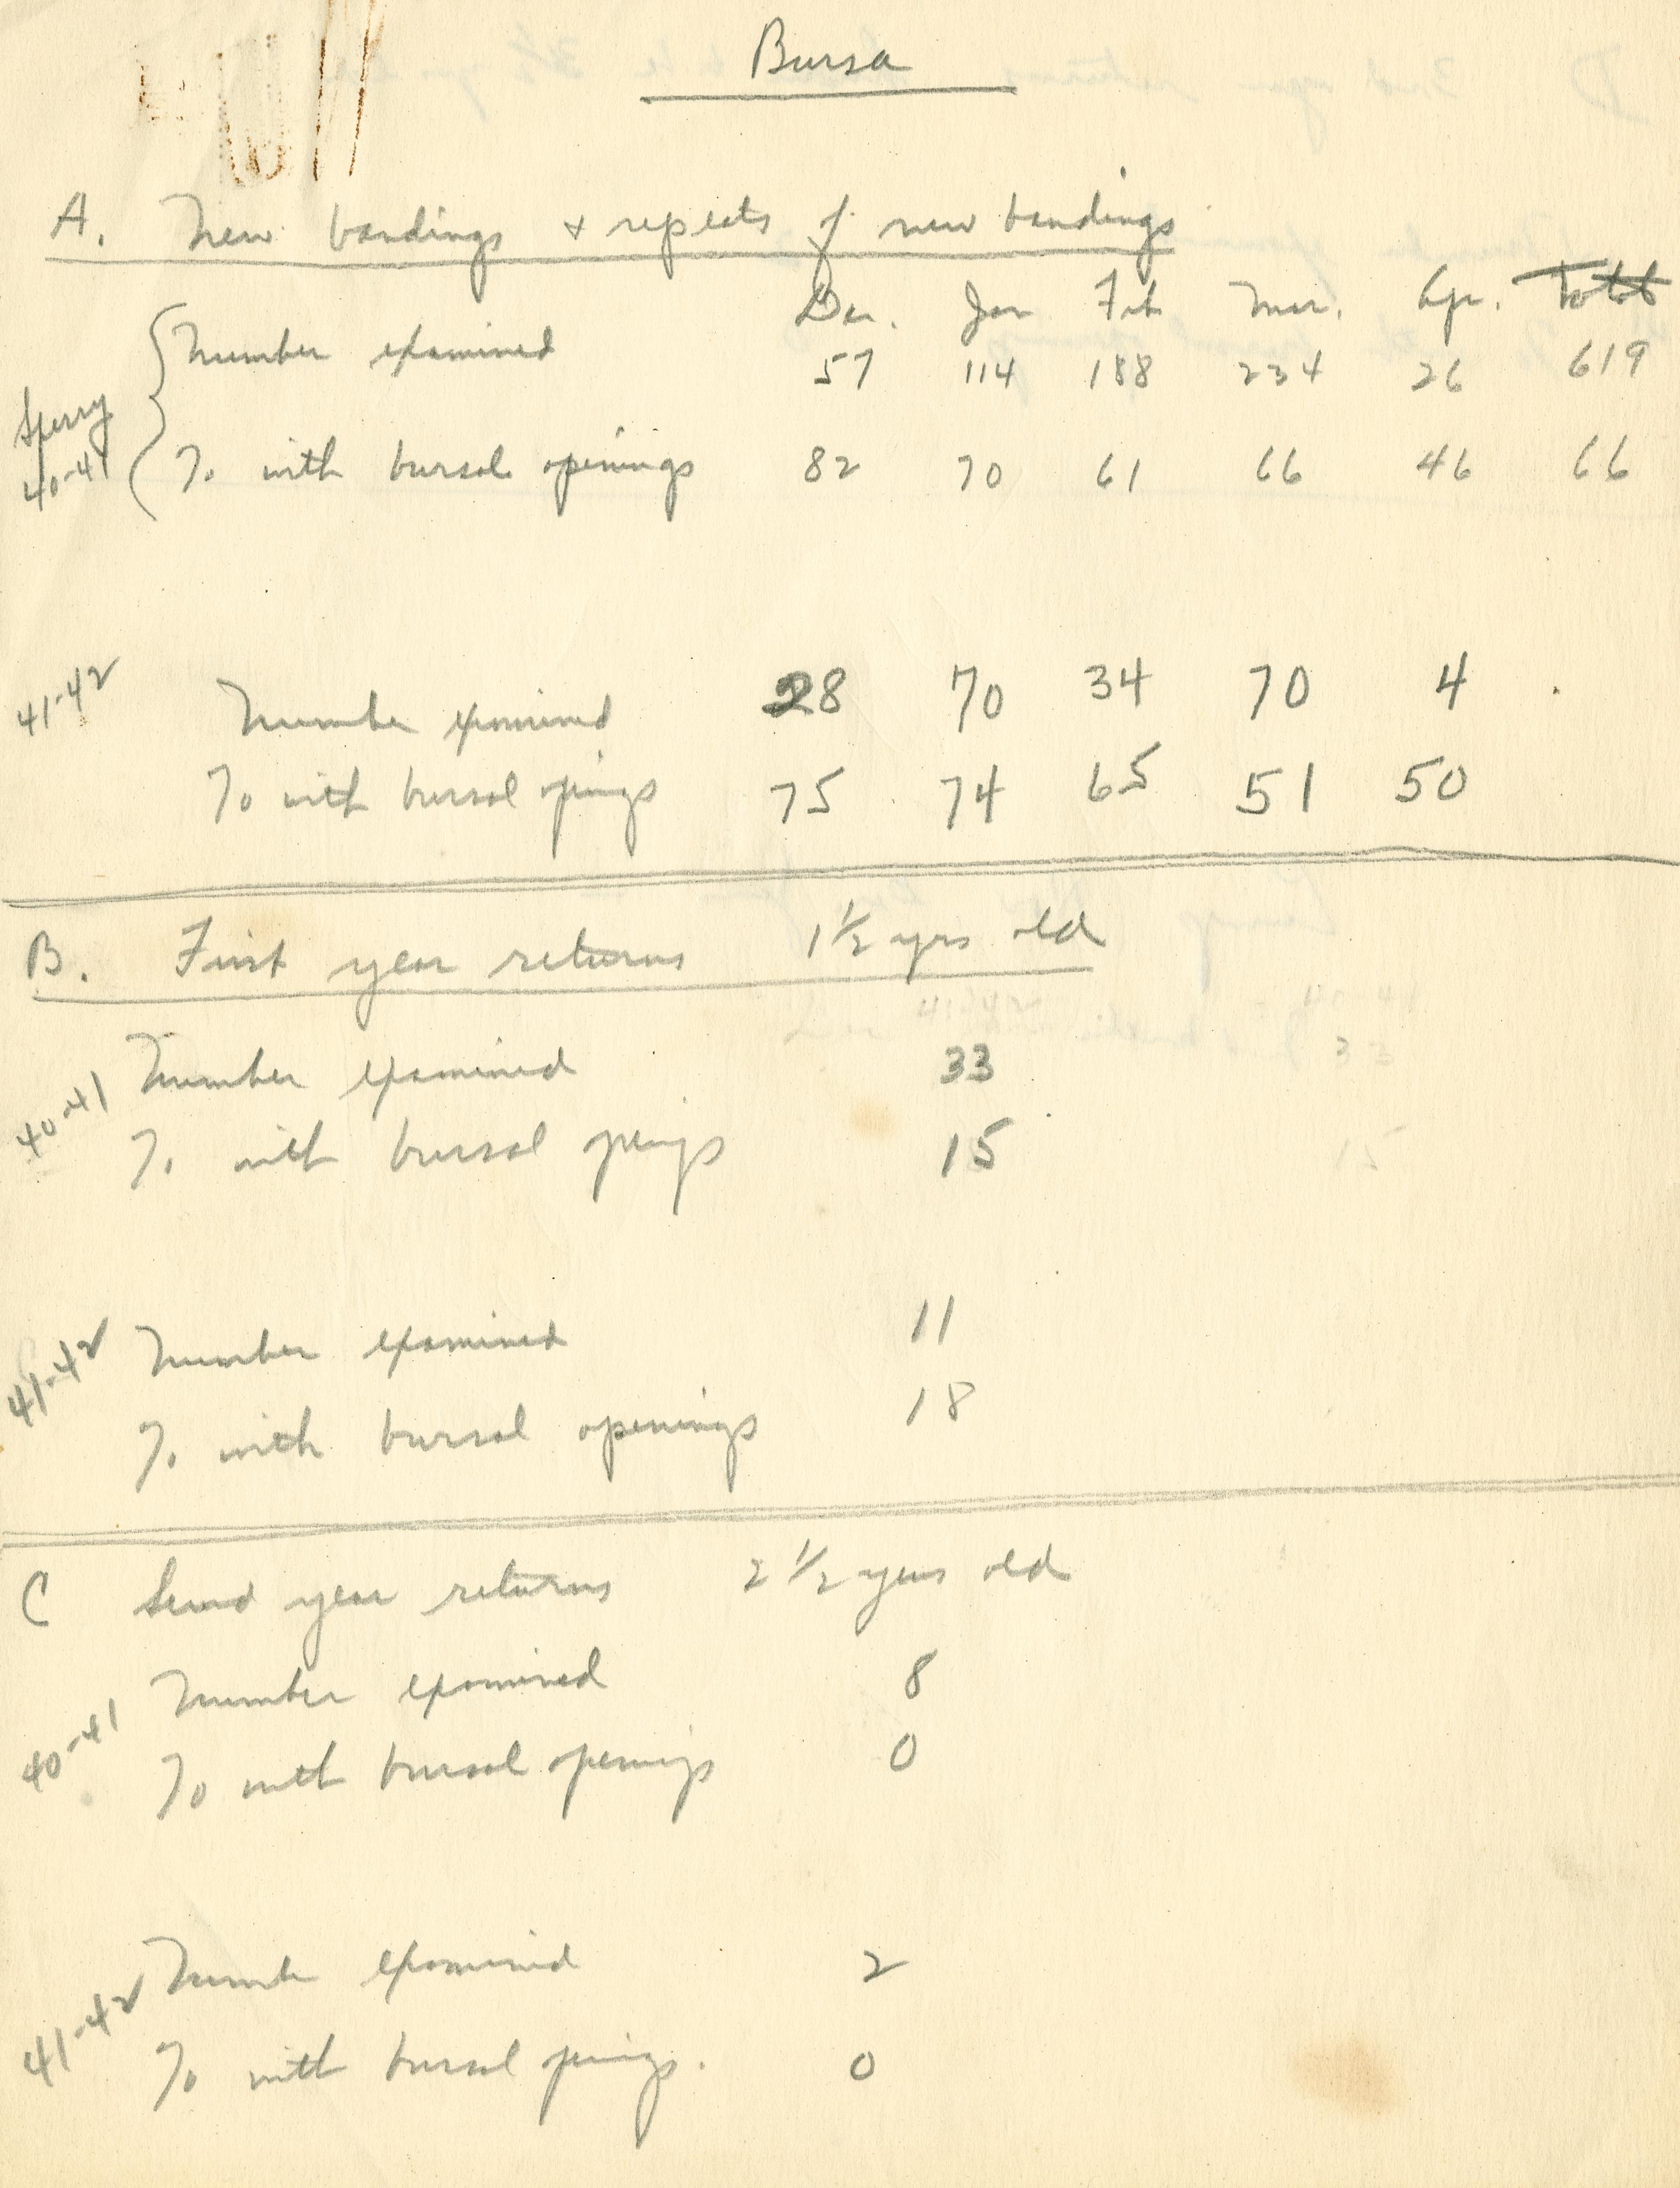 Bursa
A. New bandings & repeats of new bandings
Dec. Jan Feb Mar. Apr. Total
Sperry 40-41
Number examined 57 114 188 234 26 619
% with bursal openings 82 70 61 66 46 66
41-42
Number examined 28 70 34 70 4
% with bursal openings 75 74 65 51 50
B. First year returns 1 1/2 yrs old
40-41
Number examined 33
% with bursal openings 15
41-42
Number examined 11
% with bursal openings 18
C Second year returns 2 1/2 years old
40-41
Number examined 8
% with bursal openings 0
41-42
Number examined 2
% with bursal openings. 0